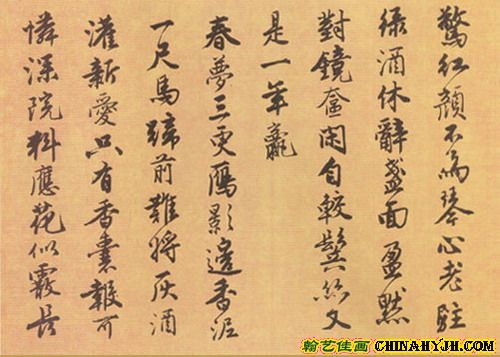 驚紅顏不為琴心老駐
綠酒休辭盞面盈默
對鏡奩閑自較鬓絲又
是一年虧
春夢三更鴈影邊香泥
一尺馬蹄前難將灰酒
灌新愛只有香囊報可
憐深院料應花似霰長
翰艺佳画 CHINAHYJH.COM